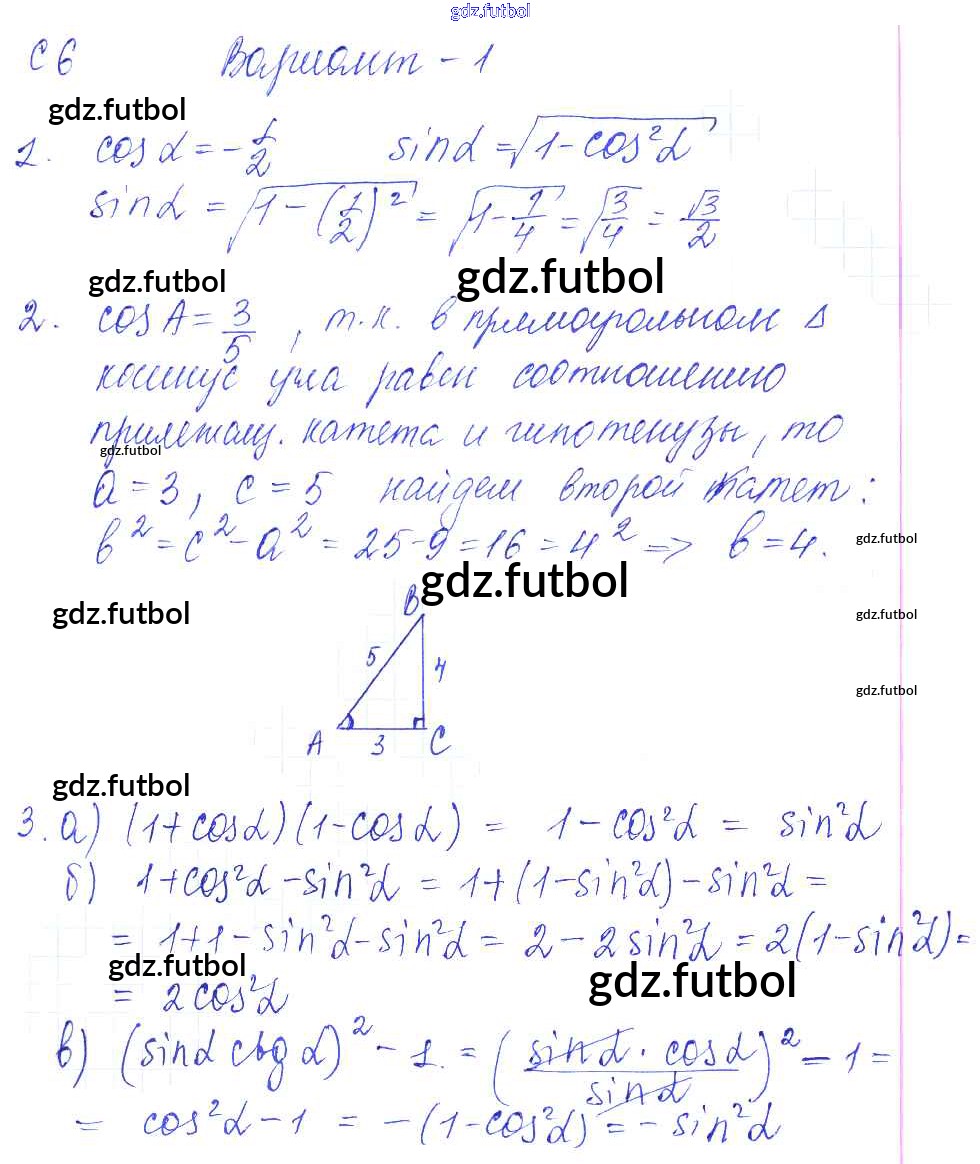 gdz.futbol
С 6 Вариант - 1
gdz.futbol
1. cos α = -1/2 sin α = √(1 - cos²α)
sin α = √(1 - (1/2)²) = √(1 - 1/4) = √(3/4) = √3/2
gdz.futbol gdz.futbol
2. cos A = 3/5, т.к. в прямоугольном Δ
косинус угла равен соотношению
прилежащ. катета и гипотенузы, то
gdz.futbol
a = 3, c = 5 найдем второй катет:
b² = c² - a² = 25 - 9 = 16 = 4² => b = 4.
gdz.futbol
gdz.futbol
B
gdz.futbol gdz.futbol
5 4
gdz.futbol
A 3 C
gdz.futbol
3. а) (1 + cos α)(1 - cos α) = 1 - cos²α = sin²α
б) 1 + cos²α - sin²α = 1 + (1 - sin²α) - sin²α =
= 1 + 1 - sin²α - sin²α = 2 - 2 sin²α = 2(1 - sin²α) =
gdz.futbol gdz.futbol
= 2 cos²α
в) (sin α ctg α)² - 1 = (sin α · cos α / sin α)² - 1 =
= cos²α - 1 = -(1 - cos²α) = - sin²α